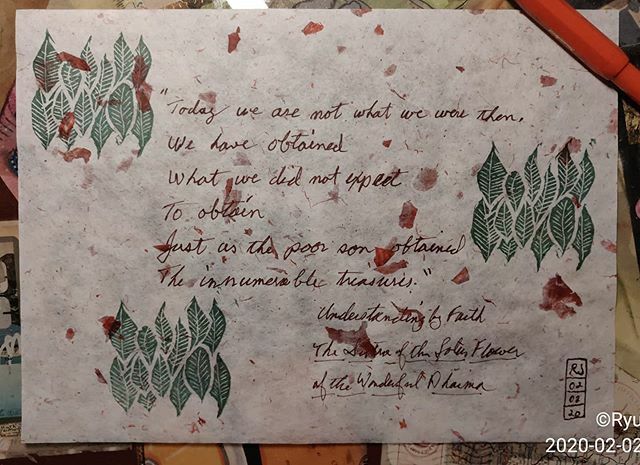 "Today we are not what we were then.
We have obtained
What we did not expect
To obtain
Just as the poor son obtained
The innumerable treasures."
Understanding by Faith
The Sutra of the Lotus Flower
of the Wonderful Dharma
RS
02
02
20
©Ryu
2020-02-02